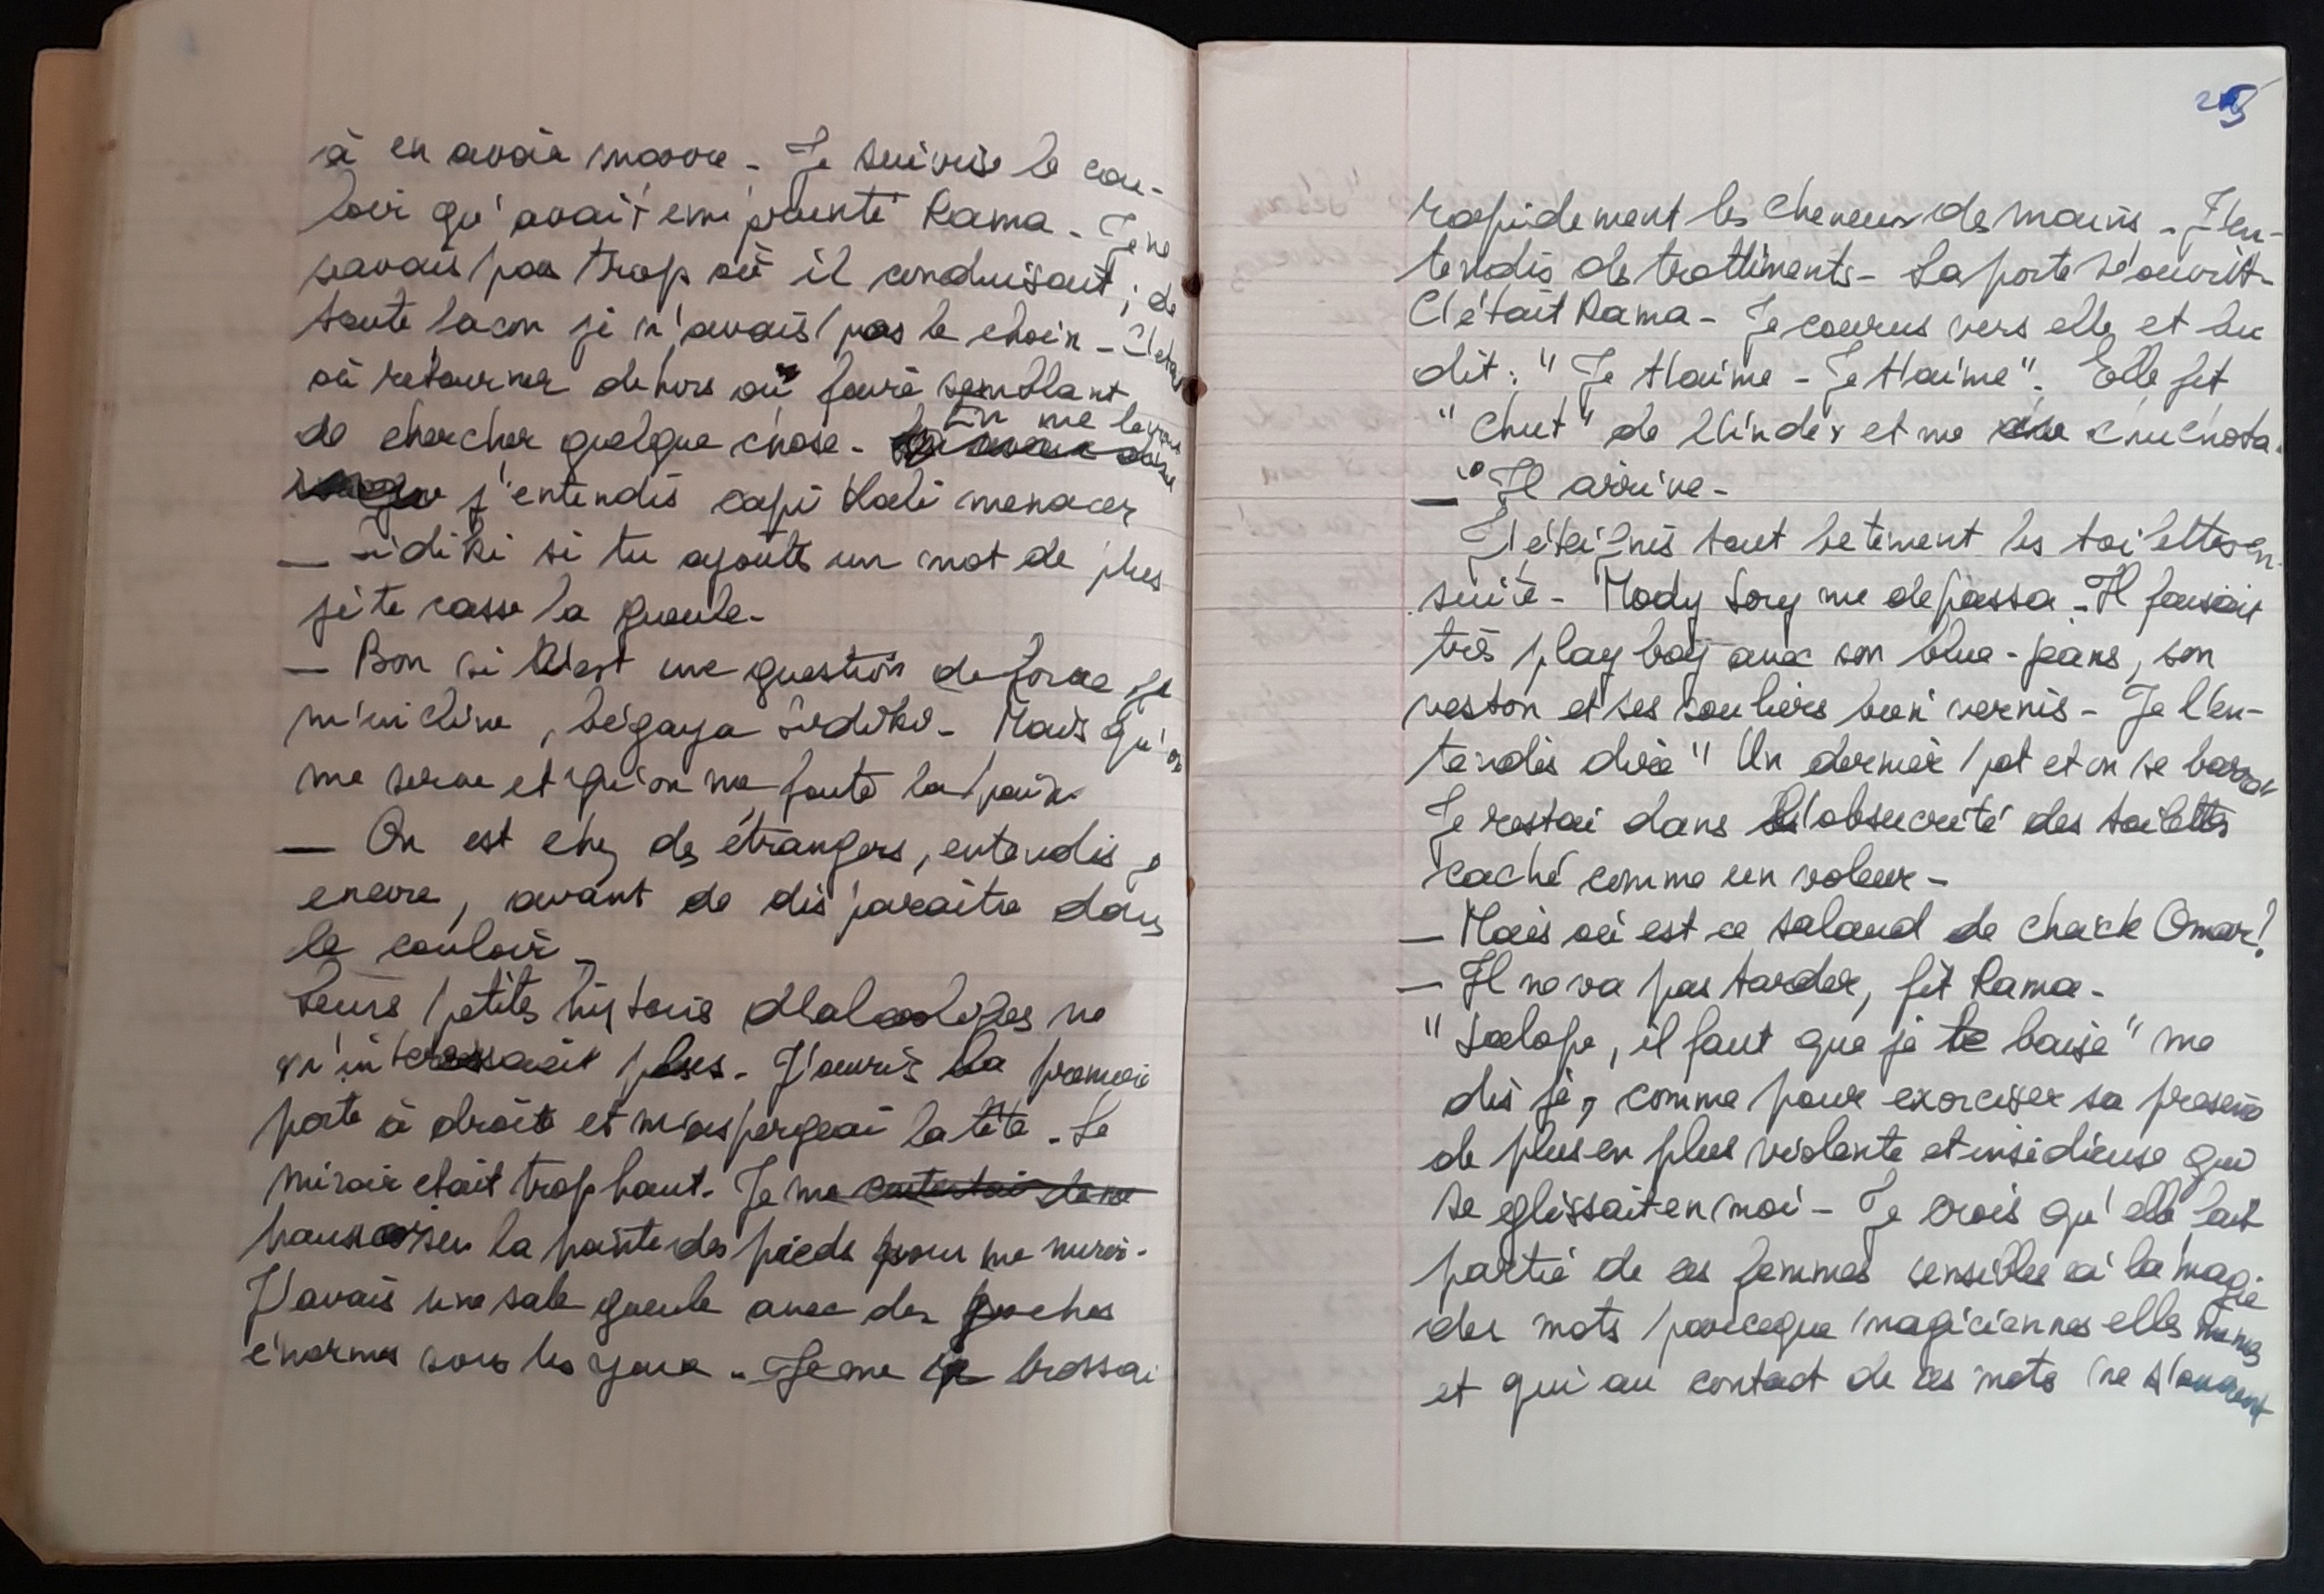 à en avoir marre - Je suivis le cou-
loir qu'avait emprunté Rama - Je ne
savais pas trop où il conduisait ; de
toute facon je n'avais pas le choix - C'etait
où retourner dehors ou faire semblant
de chercher quelque chose - En me levant
j'entendis capi Kali menacer
— Sidiki si tu ajoute un mot de plus
je te casse la gueule -
— Bon si c'est une question de force je
m'incline, bégaya Sidiki - Mais qu'on
me serve et qu'on me foute la paix
— On est chez des étrangers, entendis je
encore, avant de disparaître dans
le couloir -
Leurs petites histoires d'alcooliques ne
m'interessait plus - J'ouvris la premiere
porte à droite et m'aspergeai la tête - Le
miroir etait trop haut - Je me contentai de me
hausser sur la pointe des pieds pour me mirer -
J'avais une sale gueule avec des poches
énormes sous les yeux - Je me brossai
rapidement les cheveux des mains - J'en-
tendis des trottiments - La porte s'ouvrit -
C'était Rama - Je courus vers elle et lui
dit : " Je t'aime - Je t'aime ". Elle fit
" Chut " de l'index et me chuchota
— " Il arrive -
J'éteignis tout betement les toilettes en-
suite - Mody Sory me depassa - Il faisait
très play boy avec son blue-jeans, son
veston et ses souliers bien vernis - Je l'en-
tendis dire " Un dernier pot et on se barre "
Je restai dans l'obscurité des toilettes
caché comme un voleur -
— Mais où est ce salaud de cheick Omar ?
— Il ne va pas tarder, fit Rama -
" Salope, il faut que je te baise " me
dis je, comme pour exorciser sa presence
de plus en plus violente et insidieuse qui
se glissait en moi - Je crois qu'elle fait
partie de ces femmes sensibles à la magie
des mots parceque magiciennes elles memes
et qui au contact de ces mots ne s'ouvrent